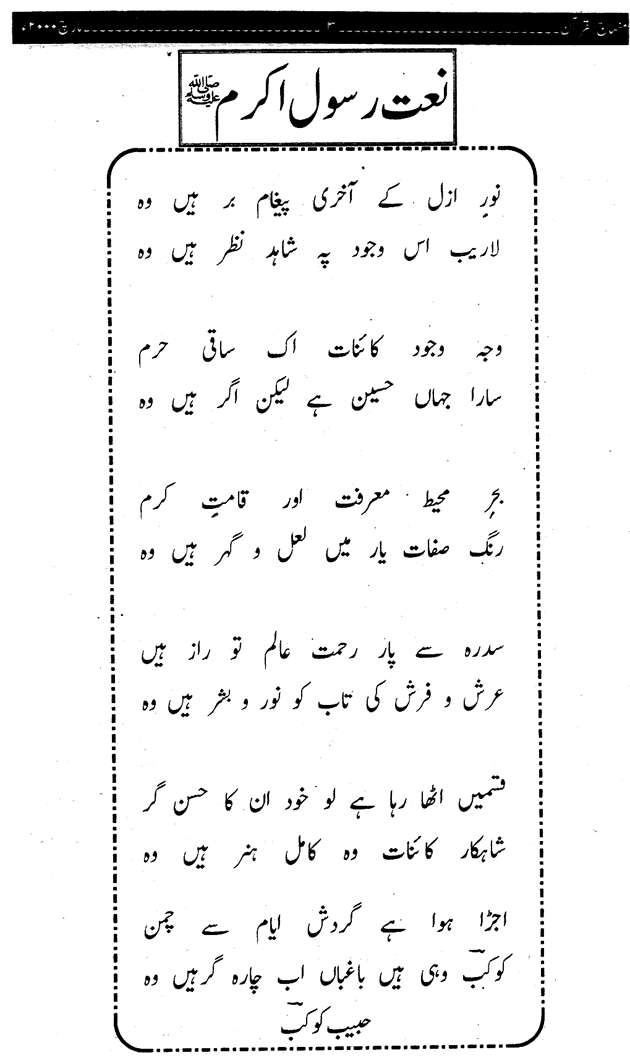 منہاج القرآن ۳ مارچ ۲۰۰۰ء
نعت رسول اکرم ﷺ
نورِ ازل کے آخری پیغام بر ہیں وہ
لاریب اس وجود پہ شاہد نظر ہیں وہ
وجہ وجود کائنات اک ساقی حرم
سارا جہاں حسین ہے لیکن اگر ہیں وہ
بحرِ محیط معرفت اور قامتِ کرم
رنگِ صفات یار میں لعل و گہر ہیں وہ
سدرہ سے پار رحمت عالم تو راز ہیں
عرش و فرش کی تاب کو نور و بشر ہیں وہ
قسمیں اٹھا رہا ہے لو خود ان کا حسن گر
شاہکار کائنات وہ کامل ہنر ہیں وہ
اجڑا ہوا ہے گردش ایام سے چمن
کوکبؔ وہی ہیں باغباں اب چارہ گر ہیں وہ
حبیب کوکبؔ